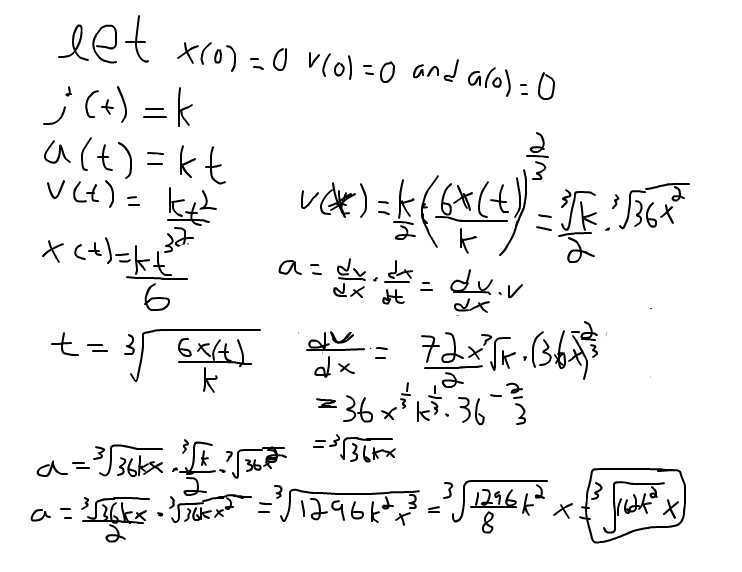 let x(0) = 0 v(0) = 0 and a(0) = 0
j(t) = k
a(t) = kt
v(t) = kt^2/2
x(t) = kt^3/6
t = ∛(6x(t)/k)
v(x) = k/2 (6x(t)/k)^(2/3) = ∛k/2 · ∛36x^2
a = dv/dx · dx/dt = dv/dx · v
dv/dx = 72x ∛k/2 · (36x)^(-2/3)
= 36x^(1/3) k^(1/3) · 36^(-2/3)
= ∛36kx
a = ∛36kx · ∛k/2 · ∛36x^2
a = ∛36kx/2 · ∛36kx^2 = ∛1296k^2x^3 = ∛(1296/8 k^2) x = ∛162k^2 x